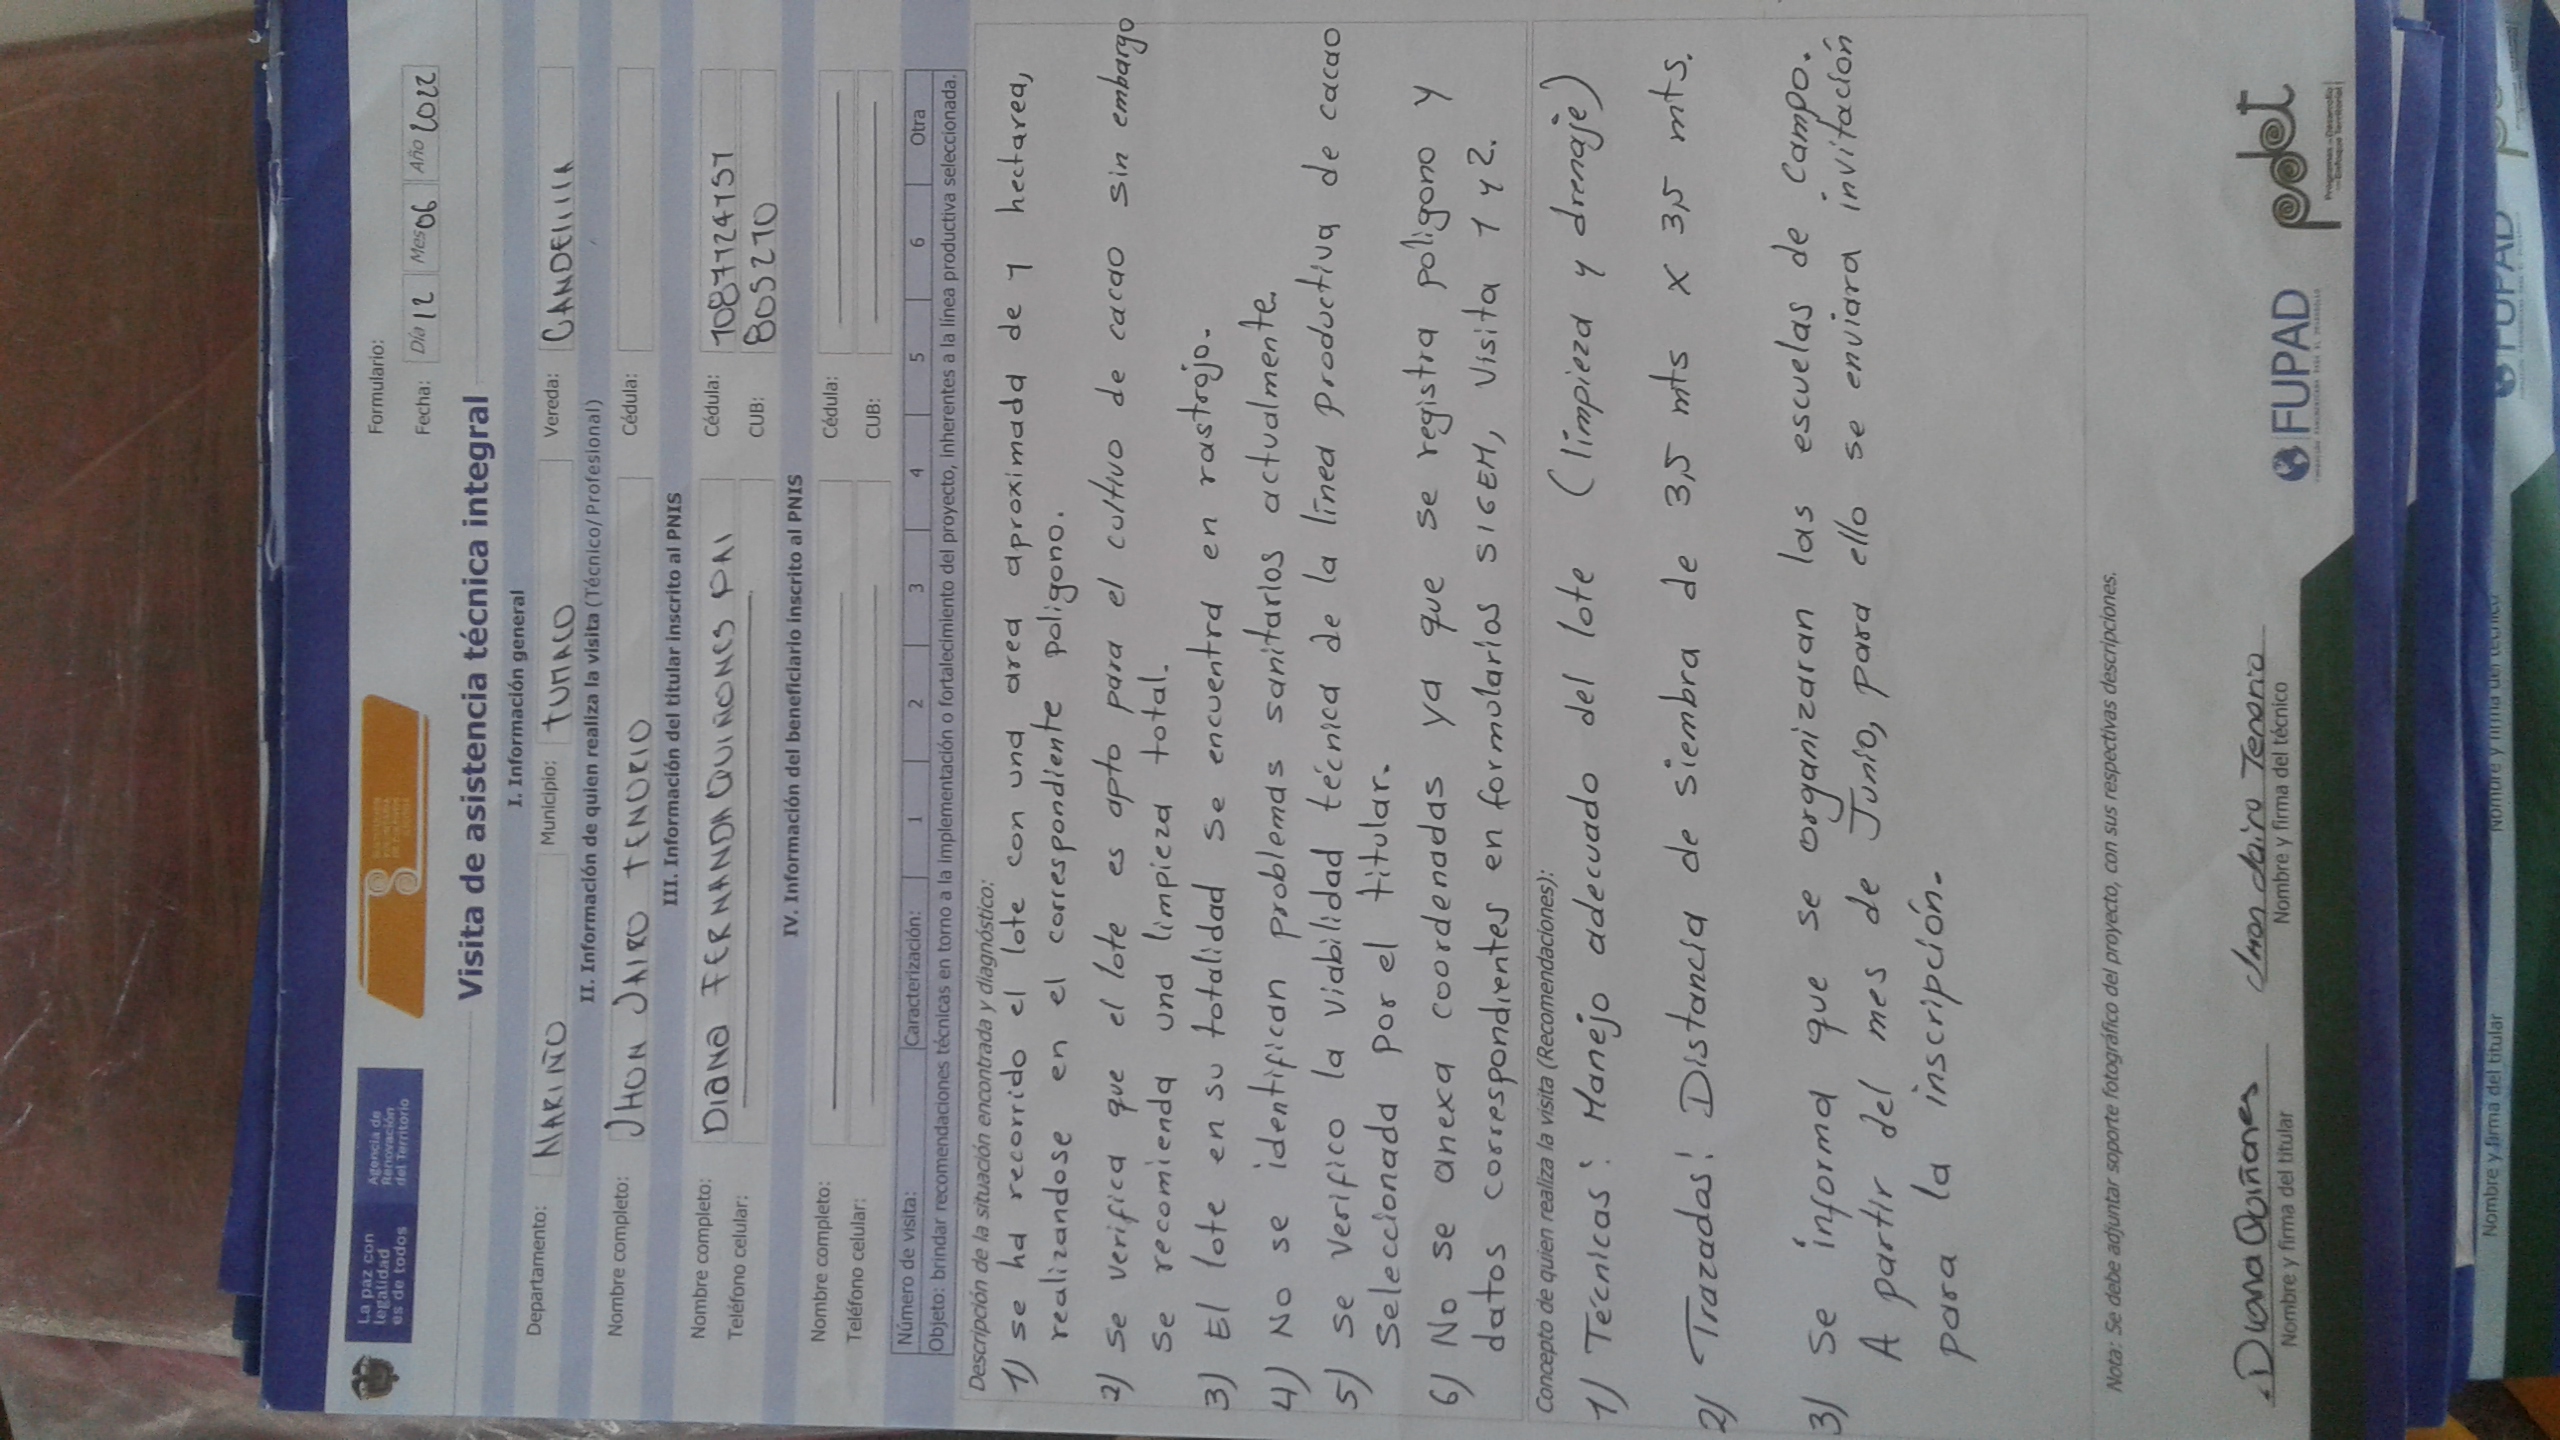 La paz con
legalidad
es de todos
Agencia de
Renovación
del Territorio
Formulario:
Fecha: Día 12 Mes 06 Año 2022
Visita de asistencia técnica integral
I. Información general
Departamento: NARIÑO Municipio: TUMACO Vereda: CANDELILLA
II. Información de quien realiza la visita (Técnico/Profesional)
Nombre completo: JHON JAIRO TENORIO Cédula:
III. Información del titular inscrito al PNIS
Nombre completo: DIANA FERNANDA QUIÑONES PAI Cédula: 1087124151
Teléfono celular: CUB: 805210
IV. Información del beneficiario inscrito al PNIS
Nombre completo: Cédula:
Teléfono celular: CUB:
Número de visita: Caracterización: 1 2 3 4 5 6 Otra
Objeto: brindar recomendaciones técnicas en torno a la implementación o fortalecimiento del proyecto, inherentes a la línea productiva seleccionada.
Descripción de la situación encontrada y diagnóstico:
1) se ha recorrido el lote con una area aproximada de 1 hectarea,
realizandose en el correspondiente poligono.
2) se verifica que el lote es apto para el cultivo de cacao sin embargo
se recomienda una limpieza total.
3) El lote en su totalidad se encuentra en rastrojo.
4) No se identifican problemas sanitarios actualmente.
5) se verifico la viabilidad técnica de la línea productiva de cacao
seleccionada por el titular.
6) No se anexa coordenadas ya que se registra poligono y
datos correspondientes en formularios SIGEM, visita 1 y 2.
Concepto de quien realiza la visita (Recomendaciones):
1) Técnicas: Manejo adecuado del lote (limpieza y drenaje)
2) Trazadas: Distancia de siembra de 3,5 mts x 3,5 mts.
3) Se informa que se organizaran las escuelas de campo.
A partir del mes de Junio, para ello se enviara invitación
para la inscripción.
Nota: Se debe adjuntar soporte fotográfico del proyecto, con sus respectivas descripciones.
Diana Qoiñones
Jhon Jairo Tenorio
Nombre y firma del titular
Nombre y firma del técnico
FUPAD
pdet
Programas de Desarrollo
con Enfoque Territorial
Nombre y firma del titular
Nombre y firma del técnico
FUPAD